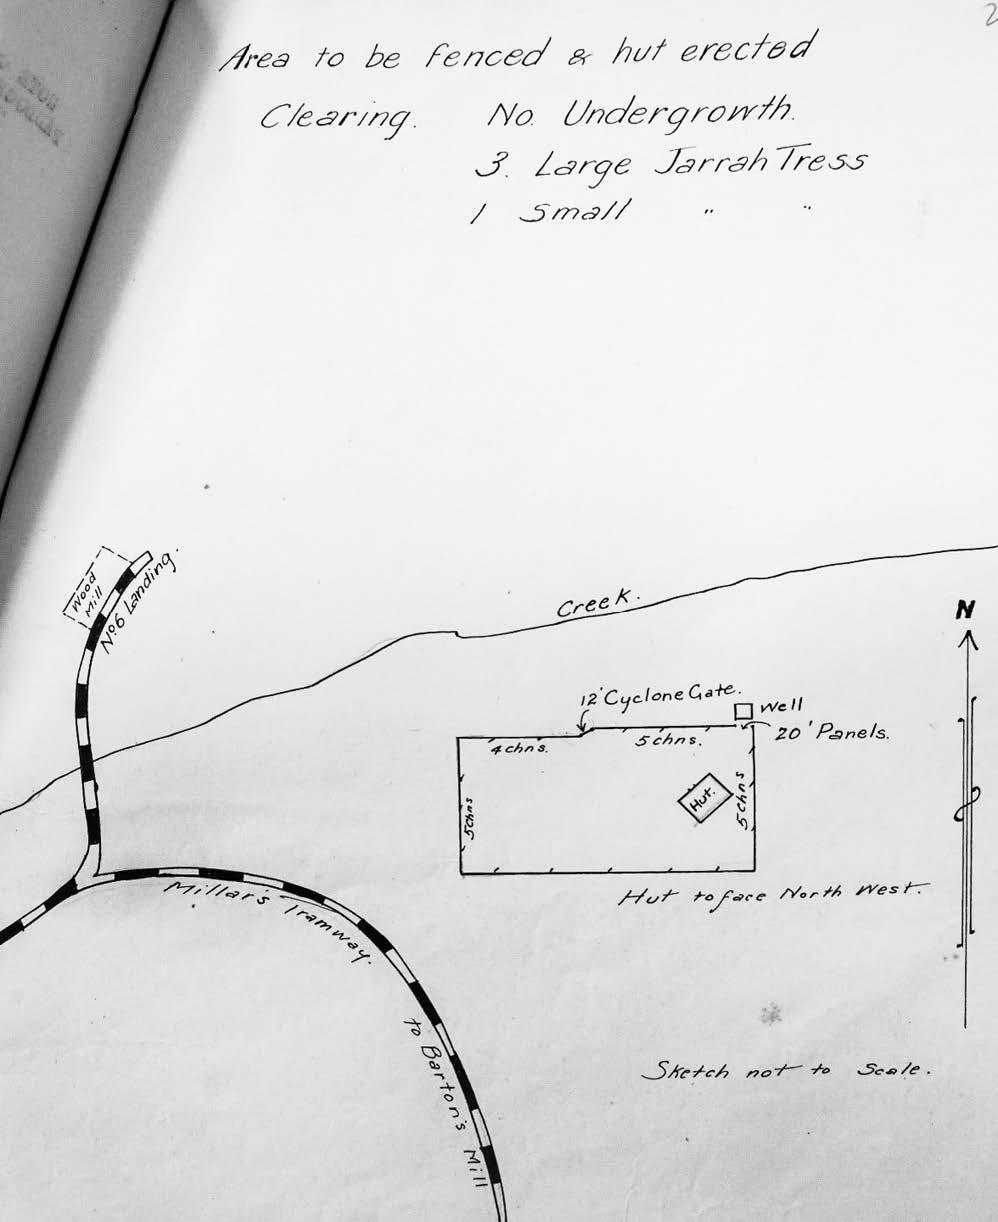 2
Area to be fenced & hut erected
Clearing. No. Undergrowth.
3. Large Jarrah Tress
1 Small " "
Wood
Mill
No6 Landing.
Creek.
N
12' Cyclone Gate.
Well
20' Panels.
4 chns.
5 chns.
5 chns
Hut.
5 chns
Hut to face North West.
Millar's Tramway.
to Barton's Mill
Sketch not to Scale.